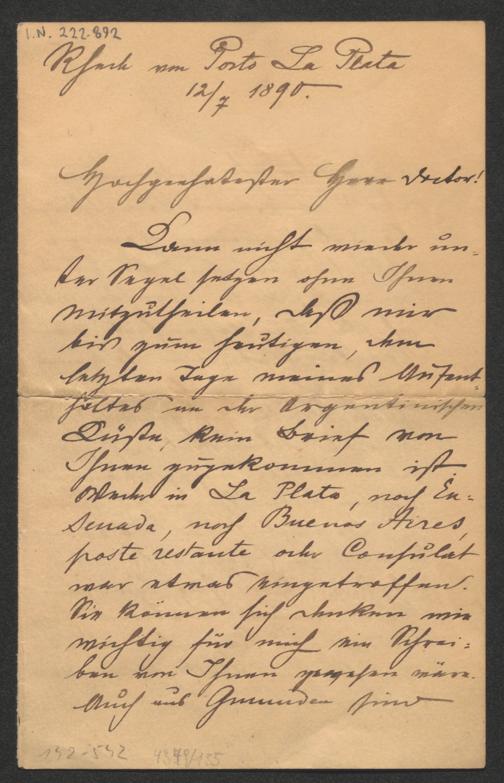 I.N. 222.892
Rhede von Porto La Plata
12/7 1890.
Hochgeehrtester Herr Doctor!
Kann nicht wieder un-
ter Segel setzen ohne Ihnen
mitzutheilen, daß mir
bis zum heutigen, dem
letzten Tage meines Aufent-
haltes an der Argentinischen
Küste, kein Brief von
Ihnen zugekommen ist
Weder in La Plata, noch En-
senada, noch Buenos Aires,
poste restante oder Consulat
war etwas eingetroffen.
Sie können sich denken wie
wichtig für mich ein Schrei-
ben von Ihnen gewesen wäre.
Auch aus Gmunden sind
142-542 4379/135